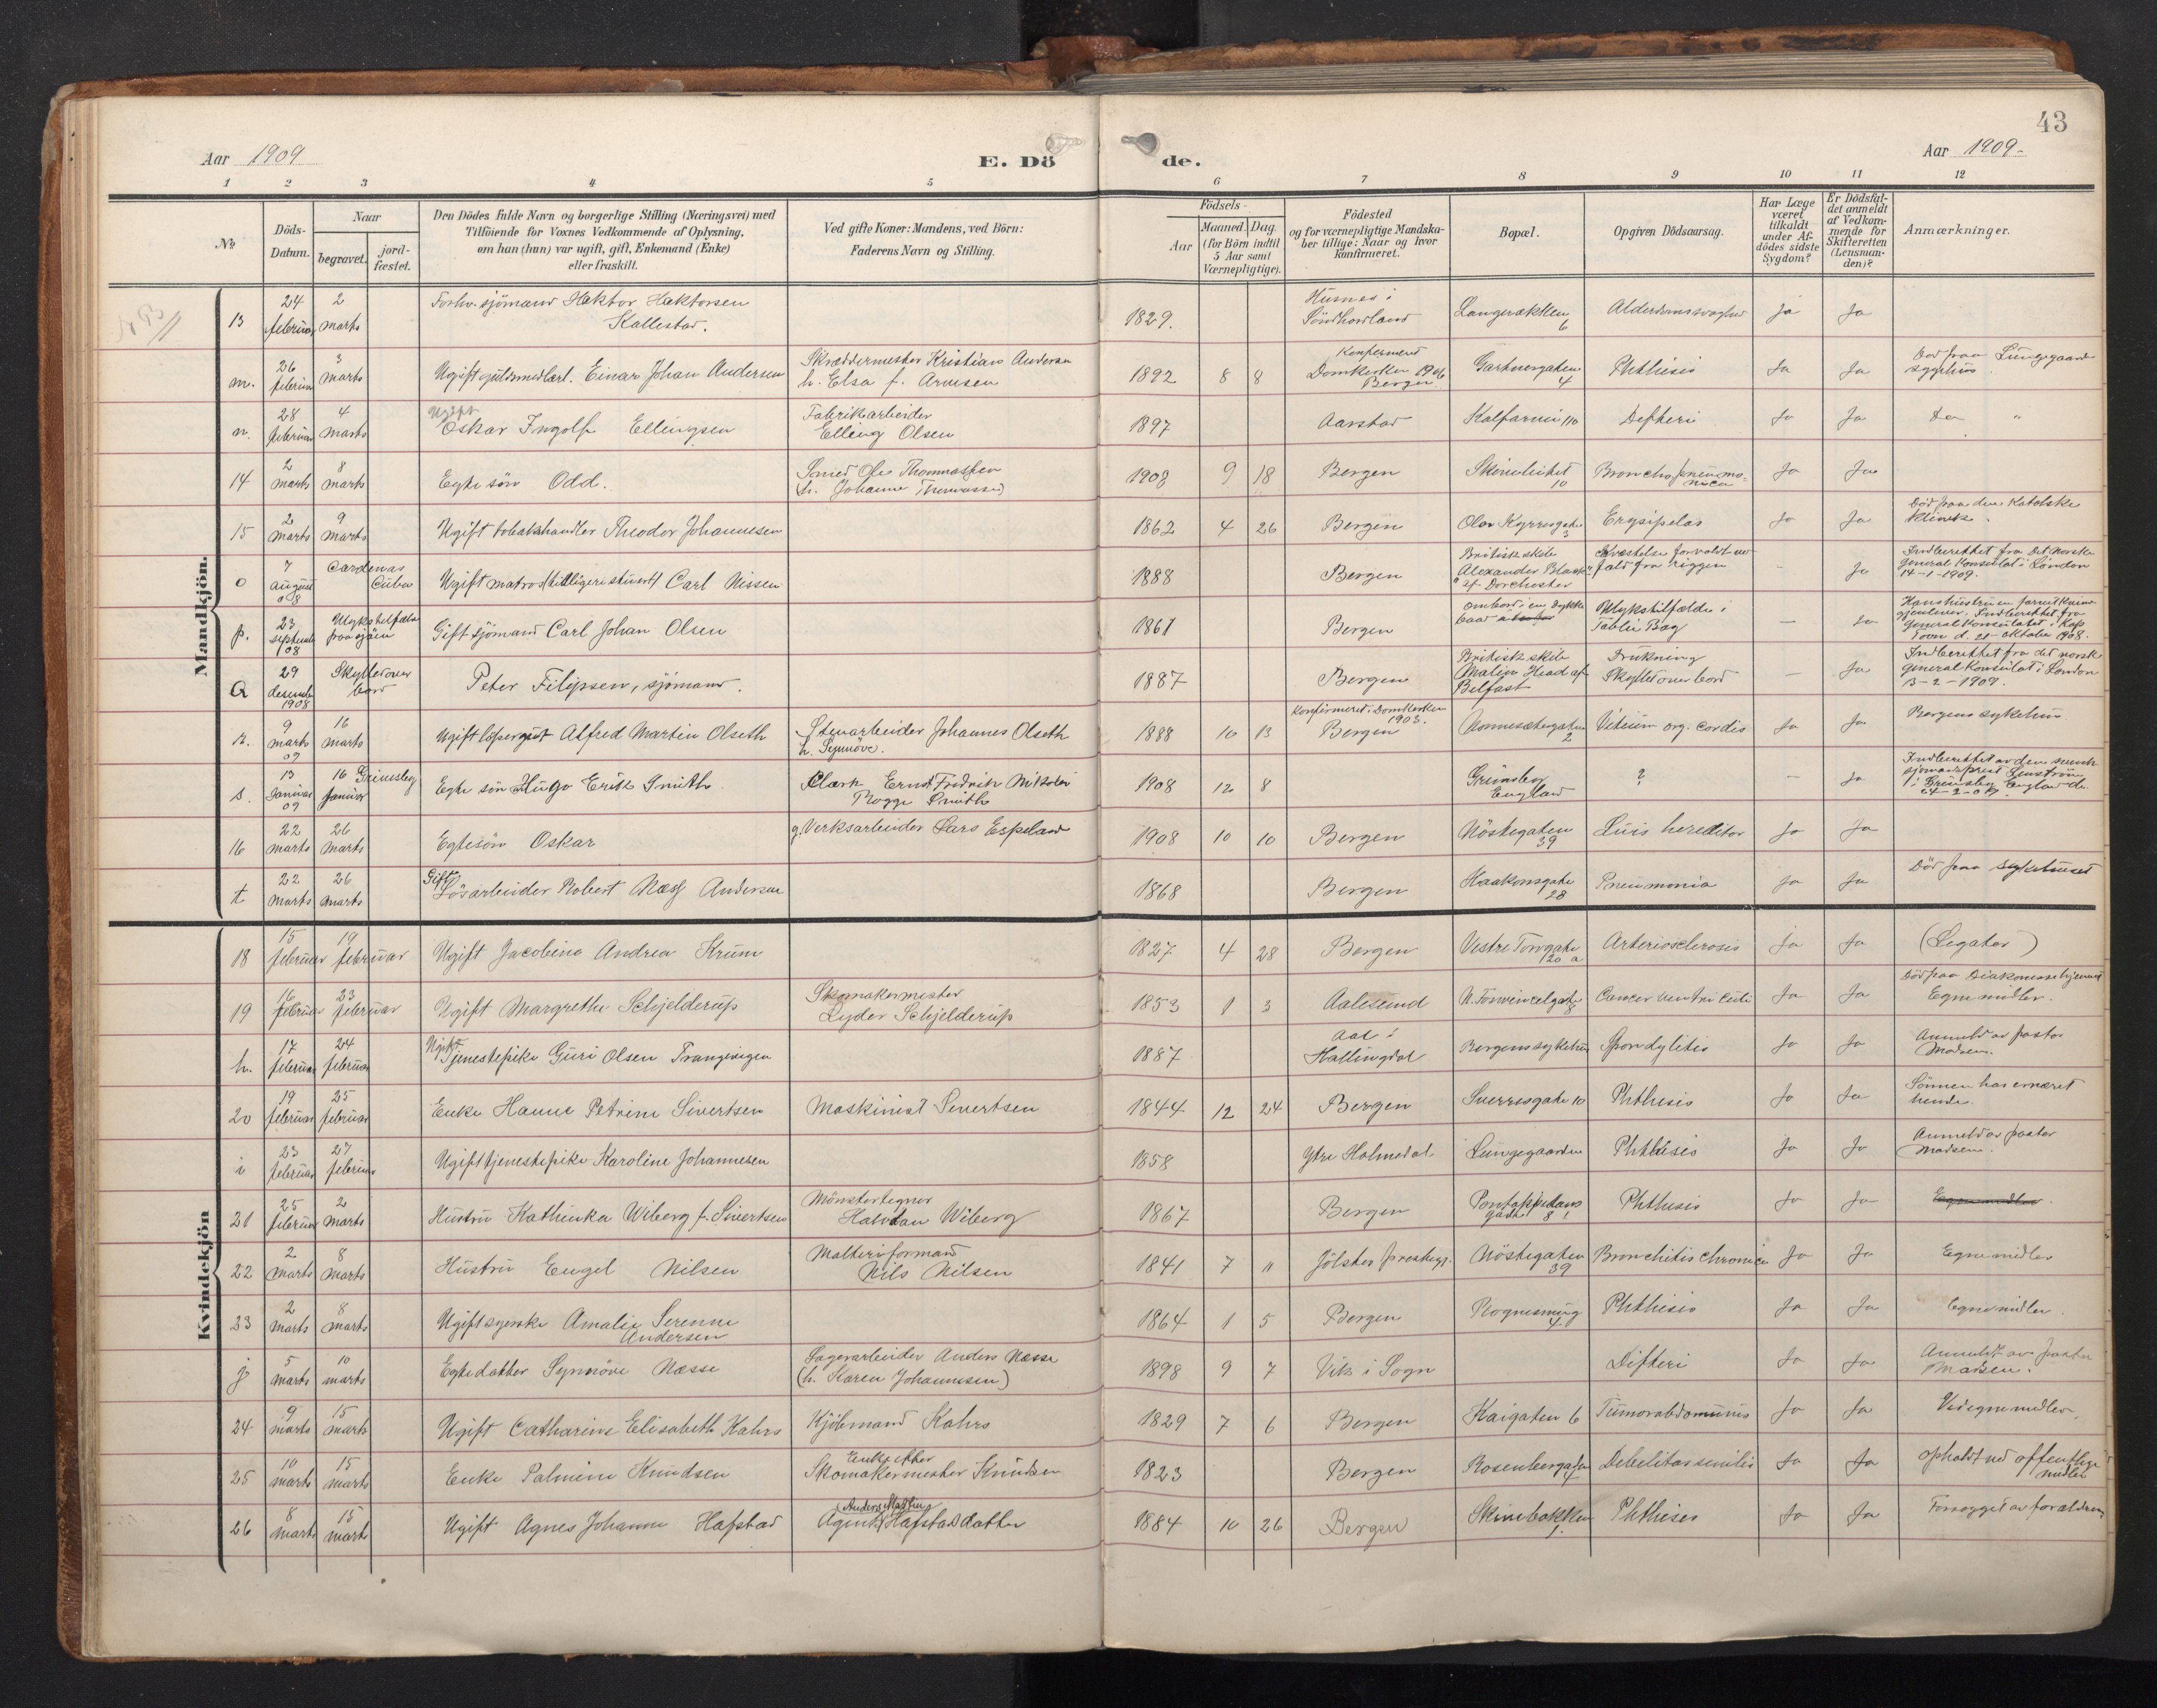 43
Aar 1909
E. Dö
de.
Aar 1909.
1 2 3 4 5 6 7 8 9 10 11 12
No
Döds-
Datum.
Naar
begravet.
jord-
fæstet.
Den Dödes fulde Navn og borgerlige Stilling (Næringsvei) med
Tilföiende for Voxnes Vedkommende af Oplysning,
om han (hun) var ugift, gift, Enkemand (Enke)
eller fraskilt.
Ved gifte Koner: Mandens, ved Börn:
Faderens Navn og Stilling.
Födsels-
Aar
Maaned. Dag.
(for Börn indtil
5 Aar samt
Værnepligtige).
Födested
og for værnepligtige Mandska-
ber tillige: Naar og hvor
konfirmeret.
Bopæl.
Opgiven Dödsaarsag.
Har Læge
været
tilkaldt
under Af-
dödes sidste
Sygdom?
Er Dödsfal-
det anmeldt
af Vedkom-
mende for
Skifteretten
(Lensman-
den)?
Anmærkninger.
Mandkjön.
13 24 februar 2 marts Forhv. sjömand Hektor Hektorsen
Kallestad. 1829. Husnes i
Söndhordland Langerækken 6 Alderdomssvaghed Ja Ja
m. 26 februar 3 marts Ugift guldsmedlærl. Einar Johan Andersen Skræddermester Kristian Andersen
h. Elsa f. Arnesen 1892 8 8 Konfirmeret
Domkirken 1906
Bergen Gartnergaten 4 Phthisis Ja Ja Død paa Lungegaards
sygehus.
n. 28 februar 4 marts Ugift
Oskar Ingolf Ellingsen Fabrikarbeider
Elling Olsen 1897 Aarstad Kalfarvei 110 Defteri Ja Ja Do "
14 2 marts 8 marts Egte sön Odd. Smed Ole Thommassen
(h. Johanne Thomassen) 1908 9 18 Bergen 10 Bronchopneumo-
nica Ja Ja
15 2 marts 9 marts Ugift tobakshandler Theodor Johannesen 1862 4 26 Bergen Olav Kyrresgate 3 Erysipelas Ja Ja Död paa den Katolske
klinik.
o 7 august 08 Cardenas
Cuba Ugift matros (tidligere stuert) Carl Nissen 1888 Bergen Britisk skib
Alexander Black"
" af Dorchester Kvæstelse forvoldt ved
fald fra riggen - Ja Indberettet fra det norske
general konsulat i London
14-1-1909.
p. 23 septemb 1908 Ulykstilfælde
paa sjöen Gift sjömand Carl Johan Olsen 1861 Bergen ombord i en dykke
baad Ulykstilfælde i
Table Bay - Ja Indberettet fra
General konsulatet i Kap
Town d. 21 oktober 1908.
Q 29 desemb 1908 Skyllet over
bord Peter Filipsen, sjömand. 1887 Bergen Britisk skib
Malin Head af
Belfast Drukning
Skyllet over bord - Ja Indberettet fra det norske
general konsulat i London
13-2-1909.
R. 9 marts 09 16 marts Ugift löpergut Alfred Martin Olseth Stenarbeider Johannes Olseth
h. Synnöve. 1888 10 13 Konfirmeret i Domkirken
1903.
Bergen Nonnesætergaten 2 Vitium org. cordis Ja Ja Bergens sykehus.
s. 13 januar 09 16 januar Grimsby Egte sön Hugo Erik Smith Clerk Ernst Fredrik Nikolai
Rogge Smith 1908 12 8 Grimsby
England ? - Ja Indberettet av den svenske
sjömandsprest
i Grimsby England
24-2-09.
16 22 marts 26 marts Egtesön Oskar g. Verksarbeider Lars Espeland 1908 10 10 Bergen Nöstegaten
39 Luis hereditar Ja Ja
t 22 marts 26 marts Gift
Lösarbeider Robert Næss Andersen 1868 Bergen Haakonsgate
28 Pneumonia Ja Ja Död paa sykehuset
Kvindekjön
18 15 februar 19 februar Ugift Jacobine Andrea Krum 1827 4 28 Bergen Vestre Torvgate
20 a Arteriosclerosis Ja Ja (Legater)
19 16 februar 23 februar Ugift Margrethe Schjelderup Skomakermester
Lyder Schjelderup 1853 1 3 Aalesund N. Torvincelgate 8 Cancer ventriculi Ja Ja Död paa Diakonissehjemmet
Egne midler.
h. 17 februar 24 februar Ugift
Tjenestepike Guri Olsen 1887 Aal i
Hallingdal Bergens sykehus Spondylitis Ja Ja Anmeldt av pastor
Madsen.
20 19 februar 25 februar Enke Hanne Petrine Sivertsen Maskinist Sivertsen 1844 12 24 Bergen Sverresgate 10 Phthisis Ja Ja Sönnen har ernæret
hende.
i 23 februar 27 februar Ugift tjenestepike Karoline Johannesen 1858 Ytre Holmedal Lungegaarden Phthisis Ja Ja Anmeldt av pastor
Madsen.
21 25 februar 2 marts Hustru Kathinka Wiberg f. Sivertsen Mönstertegner
Halvdan Wiberg 1867 Bergen Pontoppidans
gate 8 Phthisis Ja Ja Egne midler.
22 2 marts 8 marts Hustru Engel Nilsen Malteriformand
Nils Nilsen 1841 7 11 Jölster prestegj. Nöstegaten
39 Bronchitis chronica Ja Ja Egne midler
23 2 marts 8 marts Ugift syerske Amalie Serenne
Andersen 1864 1 5 Bergen Rognesmug
4 Phthisis Ja Ja Egne midler
j 5 marts 10 marts Egte datter Synnöve Næsse Lagerarbeider Anders Næsse
(h. Karen Johannesen) 1898 9 7 Vik i Sogn Difteri Ja Ja Anmeldt av pastor
Madsen.
24 9 marts 15 marts Ugift Catharine Elisabeth Kahrs Kjöbmand Kahrs 1829 7 6 Bergen Kaigaten 6 Tumor abdominis Ja Ja Ved egne midler.
25 10 marts 15 marts Enke Palmine Knudsen Enke efter
Skomakermester Knudsen 1823 Bergen Rosenbergsgaten
4 Debilitas senilis Ja Ja Opholdt ved offentlige
midler
26 8 marts 15 marts Ugift Agnes Johanne Hafstad Anders Mathias
Agent Hafstad datter 1884 10 26 Bergen Skivebakken
1 Phthisis Ja Ja Forsörget av forældrene